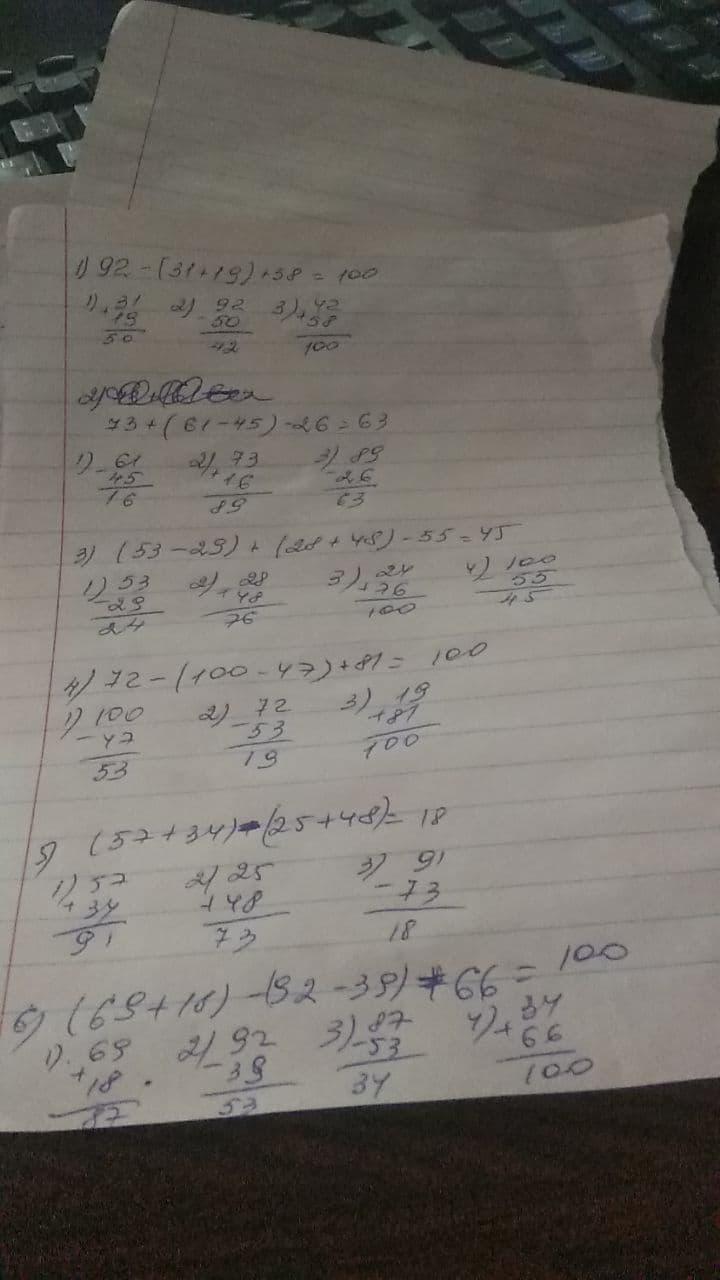 1) 92 - (31+19) + 58 = 100
1) + 31 2) - 92 3) + 42
19 50 58
50 42 100
2)
73 + (61 - 45) - 26 = 63
1) - 61 2) + 73 3) - 89
45 16 26
16 89 63
3) (53 - 29) + (28 + 48) - 55 = 45
1) - 53 2) + 28 3) + 24 4) - 100
29 48 76 55
24 76 100 45
4) 72 - (100 - 47) + 81 = 100
1) 100 2) 72 3) 19
- 47 - 53 + 81
53 19 100
5) (57 + 34) - (25 + 48) = 18
1) 57 2) 25 3) 91
+ 34 + 48 - 73
91 73 18
6) (69 + 18) - (92 - 39) + 66 = 100
1) 69 2) 92 3) 87 4) + 34
+ 18 - 39 - 53 66
87 53 34 100